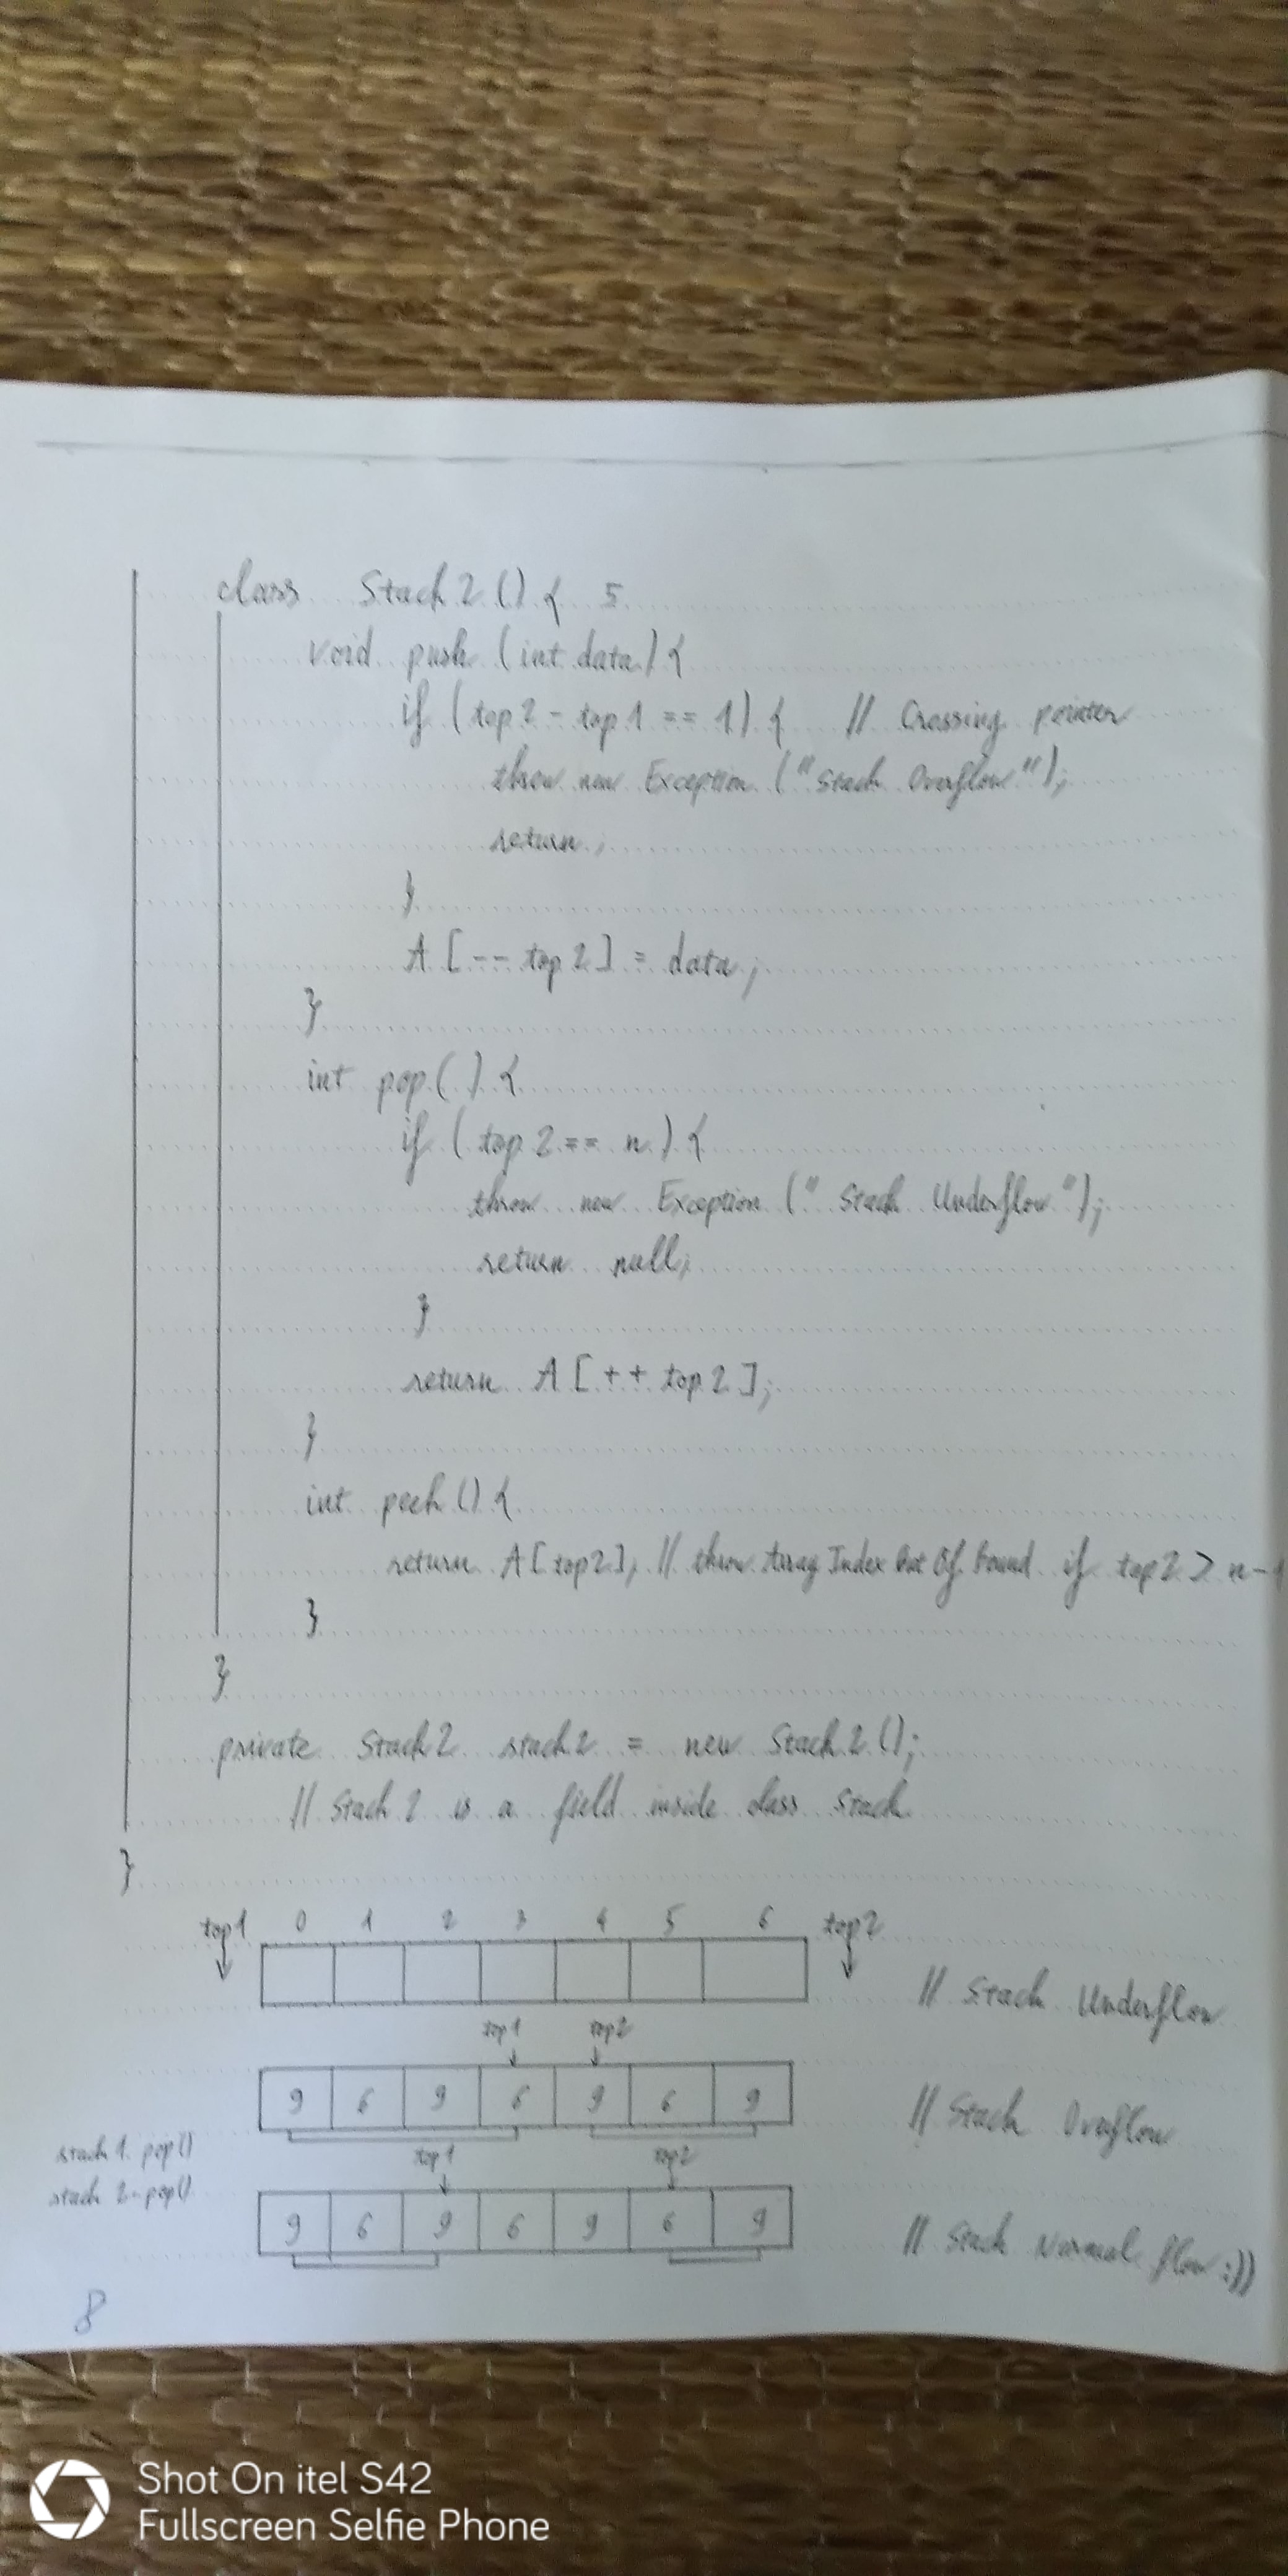 class Stack2() { 5
void push (int data) {
if (top2 - top1 == 1) { // Crossing pointer
throw new Exception ("Stack Overflow");
return;
}
A [-- top2] = data;
}
int pop() {
if (top2 == n) {
throw new Exception (" Stack Underflow ");
return null;
}
return A [++ top2];
}
int peek () {
return A[top2]; // throw Array Index Out Of Bound if top2 > n-1
}
}
private Stack2 stack2 = new Stack2();
// Stack2 is a field inside class Stack
}
top1 0 1 2 3 4 5 6 top2
// Stack Underflow
top1 top2
9 6 9 6 9 6 9 // Stack Overflow
stack1.pop() top1 top2
stack2.pop()
9 6 9 6 9 6 9 // Stack Normal flow :))
8
Shot On itel S42
Fullscreen Selfie Phone